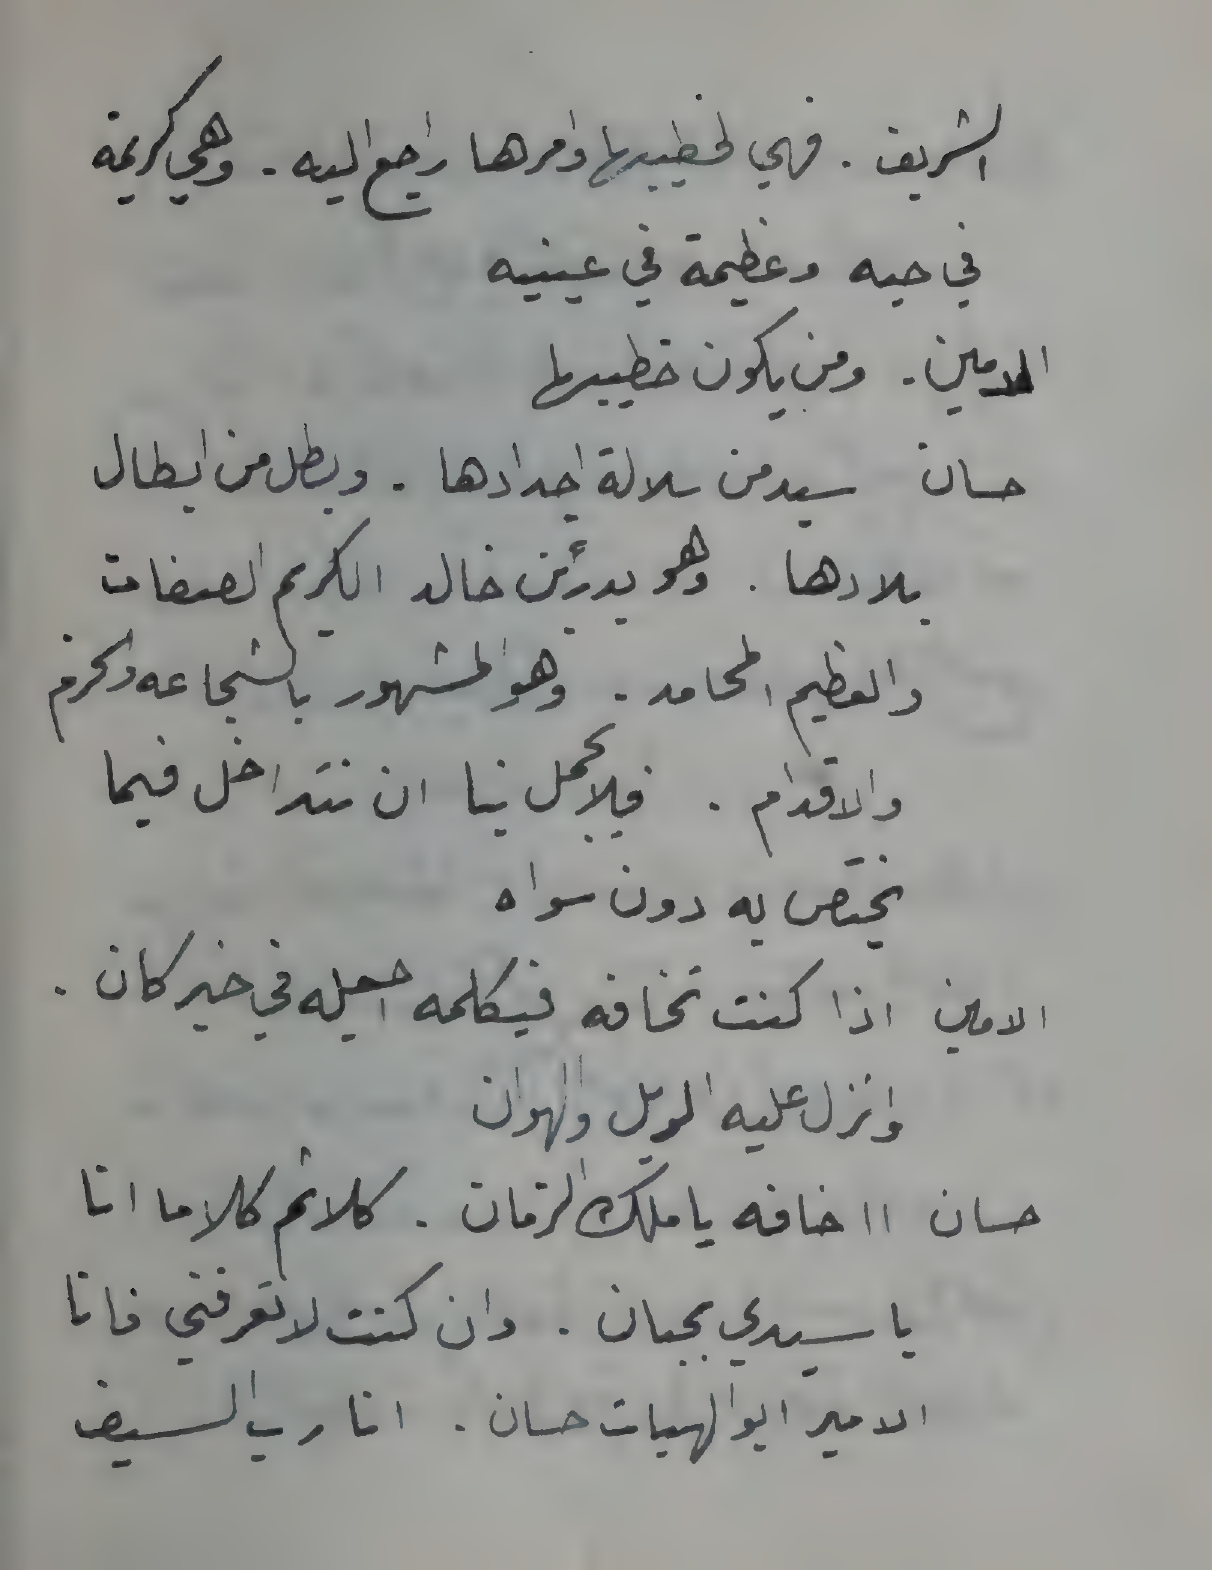 الشريف . فهي لخطيبها وامرها راجع اليه . وهي كريمة
في حبه وعظيمة في عينيه
الامين . ومن يكون خطيبها
حسان سيد من سلالة اجدادها . وبطل من ابطال
بلادها . وهو بدر بن خالد الكريم الصفات
والعظيم المحامد . وهو المشهور بالشجاعه والحزم
والاقدام . فلا يجمل بنا ان نتداخل فيما
يختص به دون سواه
الامين اذا كنت تخافه فبكلمه اجعله في خبر كان .
وانزل عليه الويل والهوان
حسان ااخافه يا ملك الزمان . كلا ثم كلا ما انا
يا سيدي بجبان . وان كنت لا تعرفني فانا
الامير ابو الهيبات حسان . انا رب السيف